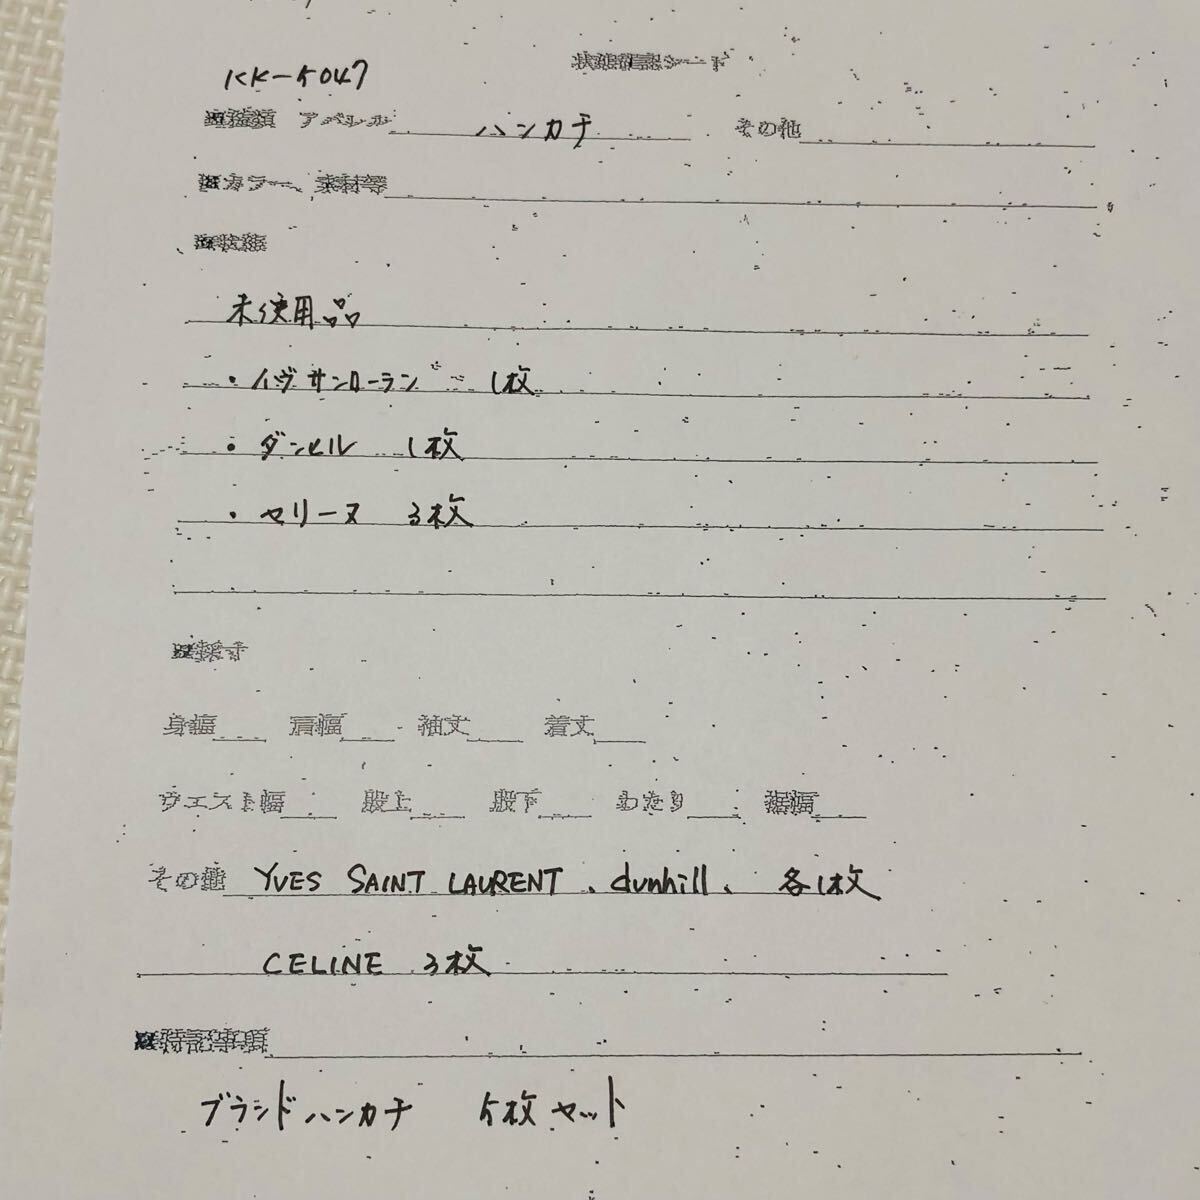 状態確認シート
KK-5047
※種類 アパレル ハンカチ その他
※カラー、素材等
※状態
未使用品
・イヴサンローラン 1枚
・ダンヒル 1枚
・セリーヌ 3枚
※採寸
身幅 肩幅 袖丈 着丈
ウエスト幅 股上 股下 わたり 裾幅
その他 YVES SAINT LAURENT、dunhill、各1枚
CELINE 3枚
※特記事項
ブランドハンカチ 5枚セット